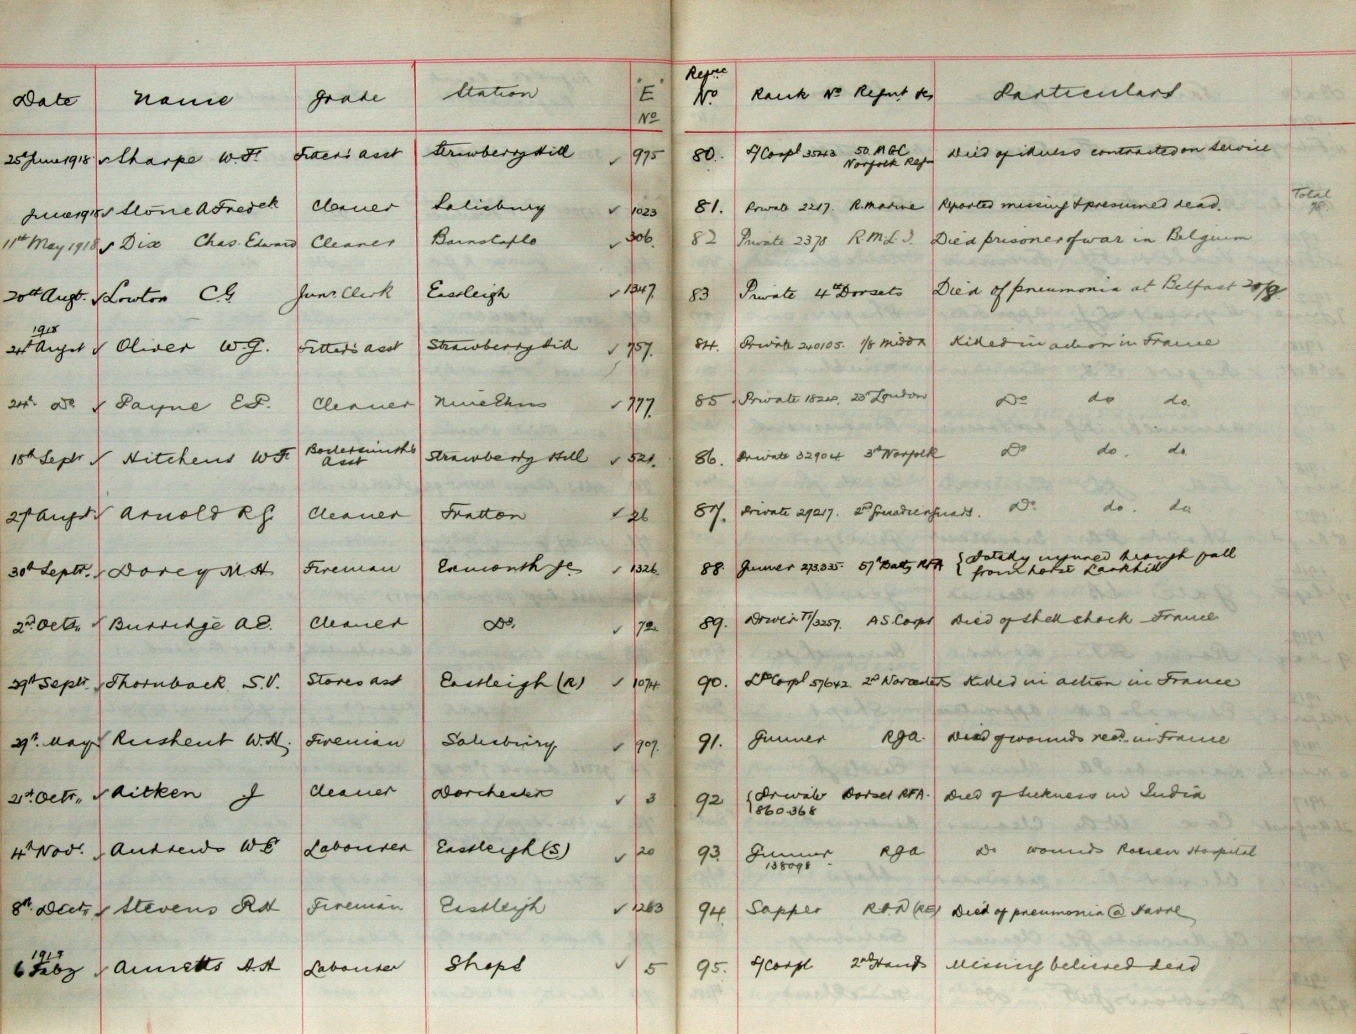 Date Name Grade Station E No Regtr No. Rank No Regmt &c Particulars
25th June 1918 Sharpe W.F. Fitter's asst Strawberry Hill 975 80. L/Corpl 3543 50 MGC Died of illness contracted on Service
Norfolk Regt
June 1918 Stone A Fredck Cleaner Salisbury 1023 81. Private 2217. R. Marine Reported missing & presumed dead. Total
78.
11th May 1918 Dix Chas. Edward Cleaner Barnstaple 306. 82 Private 2378 R.M.L.I. Died prisoner of war in Belgium
20th Augt. Lowton C G Junr. Clerk Eastleigh 1347. 83 Private 4th Dorsets Died of pneumonia at Belfast 20/8
1918
24th Augst Oliver W.G. Fitter's asst Strawberry Hill 757. 84. Private 240105. 1/8 Middx Killed in action in France
24th Do Payne E P. Cleaner Nine Elms 777. 85. Private 23rd London Do do do.
18th Septr Hitchens W F. Boilersmith's 521. 86. Private 32904 3rd Norfolk Do do. do.
asst Strawberry Hill
27 Augst Arnold R G Cleaner Fratton 26 87. Private 29217. 2nd Grenadier Guards. Do. do. do
30th Septr. Dorey M H Fireman Exmouth Jc. 1326. 88. Gunner 273335. 57th Batty RFA { Fatally injured through fall
from horse Larkhill
2nd Octr. Burridge A E. Cleaner Do. 72. 89. Driver T/3257. A S. Corps Died of Shell shock France
29th Septr. Thornback S.V. Stores asst Eastleigh (R) 1074 90. Lce Corpl 57642 2nd Worcesters Killed in action in France
29th. May Rushent W.H. Fireman Salisbury 907. 91. Gunner RGA. Died of wounds recd. in France
21st. Octr. Aitken J Cleaner Dorchester 3 92 { Private Dorset RFA. Died of sickness in India
860.368
4th Nov. Andrews W E Labourer Eastleigh (S) 20 93. Gunner RGA Do wounds Rouen Hospital
138098
8th Decr. Stevens R H Fireman Eastleigh 1263 94. Sapper (RE) Died of pneumonia @ Havre
1919
6 Feby Annetts A H Labourer Shops 5 95. L/Corpl 2nd Hants Missing believed dead